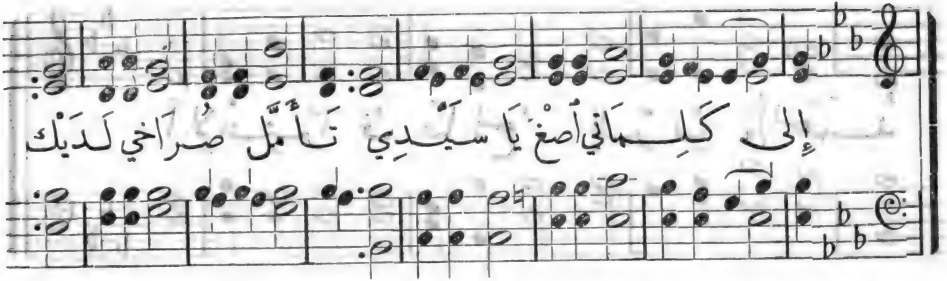 إِلى كَلِـمَاتي أَصْغِ يَا سَيِّـدِي تَـأَمَّل صُرَاخي لَدَيْك